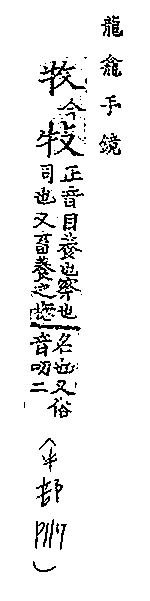 龍龕手鏡
牧今𤘽正音目養也察也
司也又畜養之惣名也又俗
音叨二
（牛部